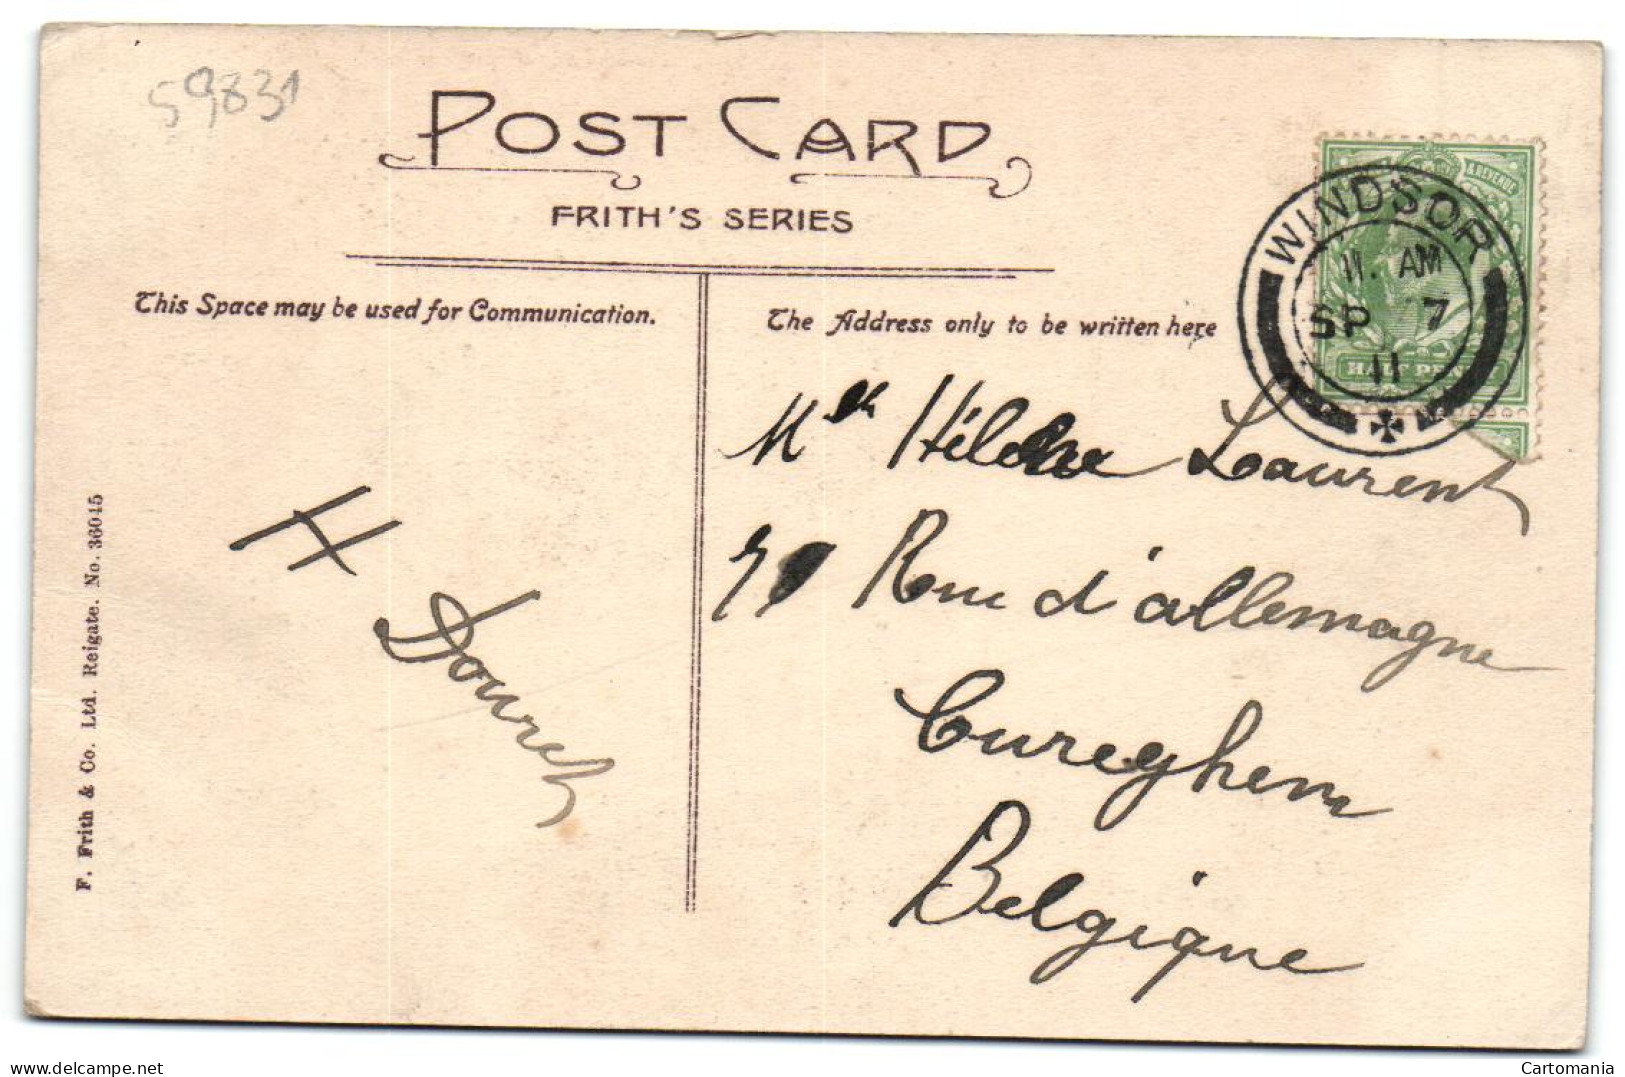 59831
POST CARD
FRITH'S SERIES
This Space may be used for Communication.
The Address only to be written here
& REVENUE
HALF PENNY
WINDSOR
11. AM
SP 7
11
Mlle Laurent
Rue d'allemagne
Cureghem
Belgique
H Douret
F. Frith & Co. Ltd. Reigate. No. 36045
delcampe.net
Cartomania